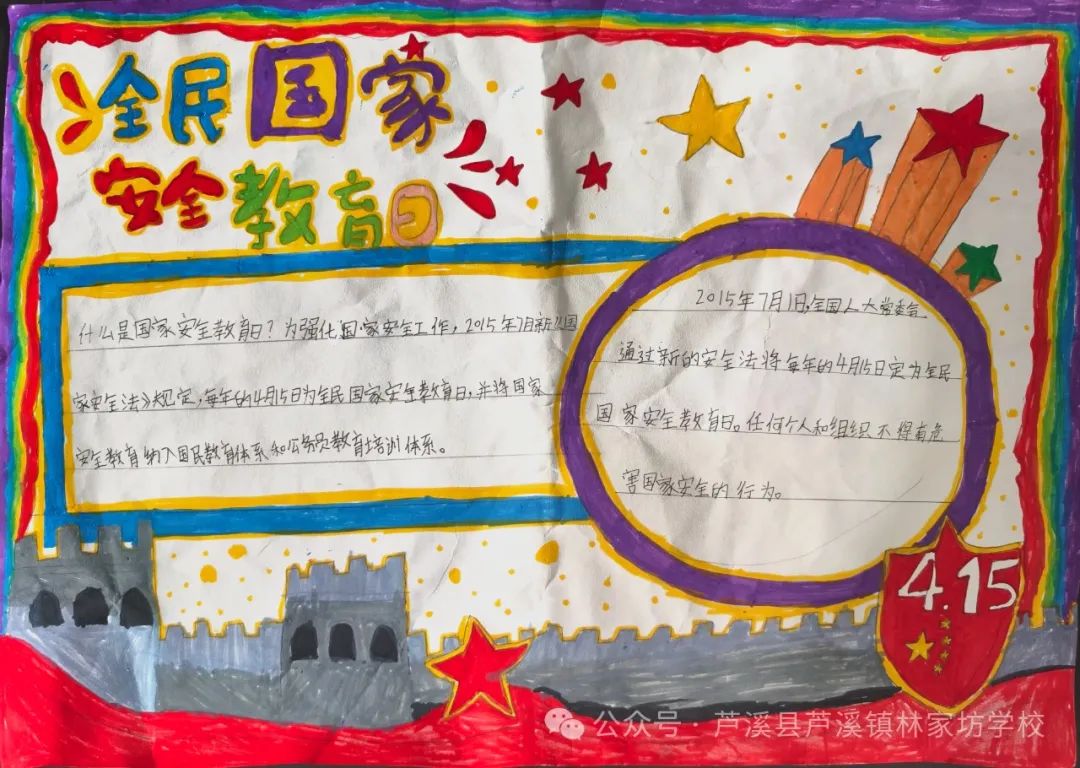 全民国家
安全教育日
什么是国家安全教育日？为强化国家安全工作，2015年7月新《国
家安全法》规定，每年的4月15日为全民国家安全教育日，并将国家
安全教育纳入国民教育体系和公务员教育培训体系。
2015年7月1日，全国人大常委会
通过新的安全法将每年的4月15日定为全民
国家安全教育日。任何个人和组织不得有危
害国家安全的行为。
4.15
公众号·芦溪县芦溪镇林家坊学校